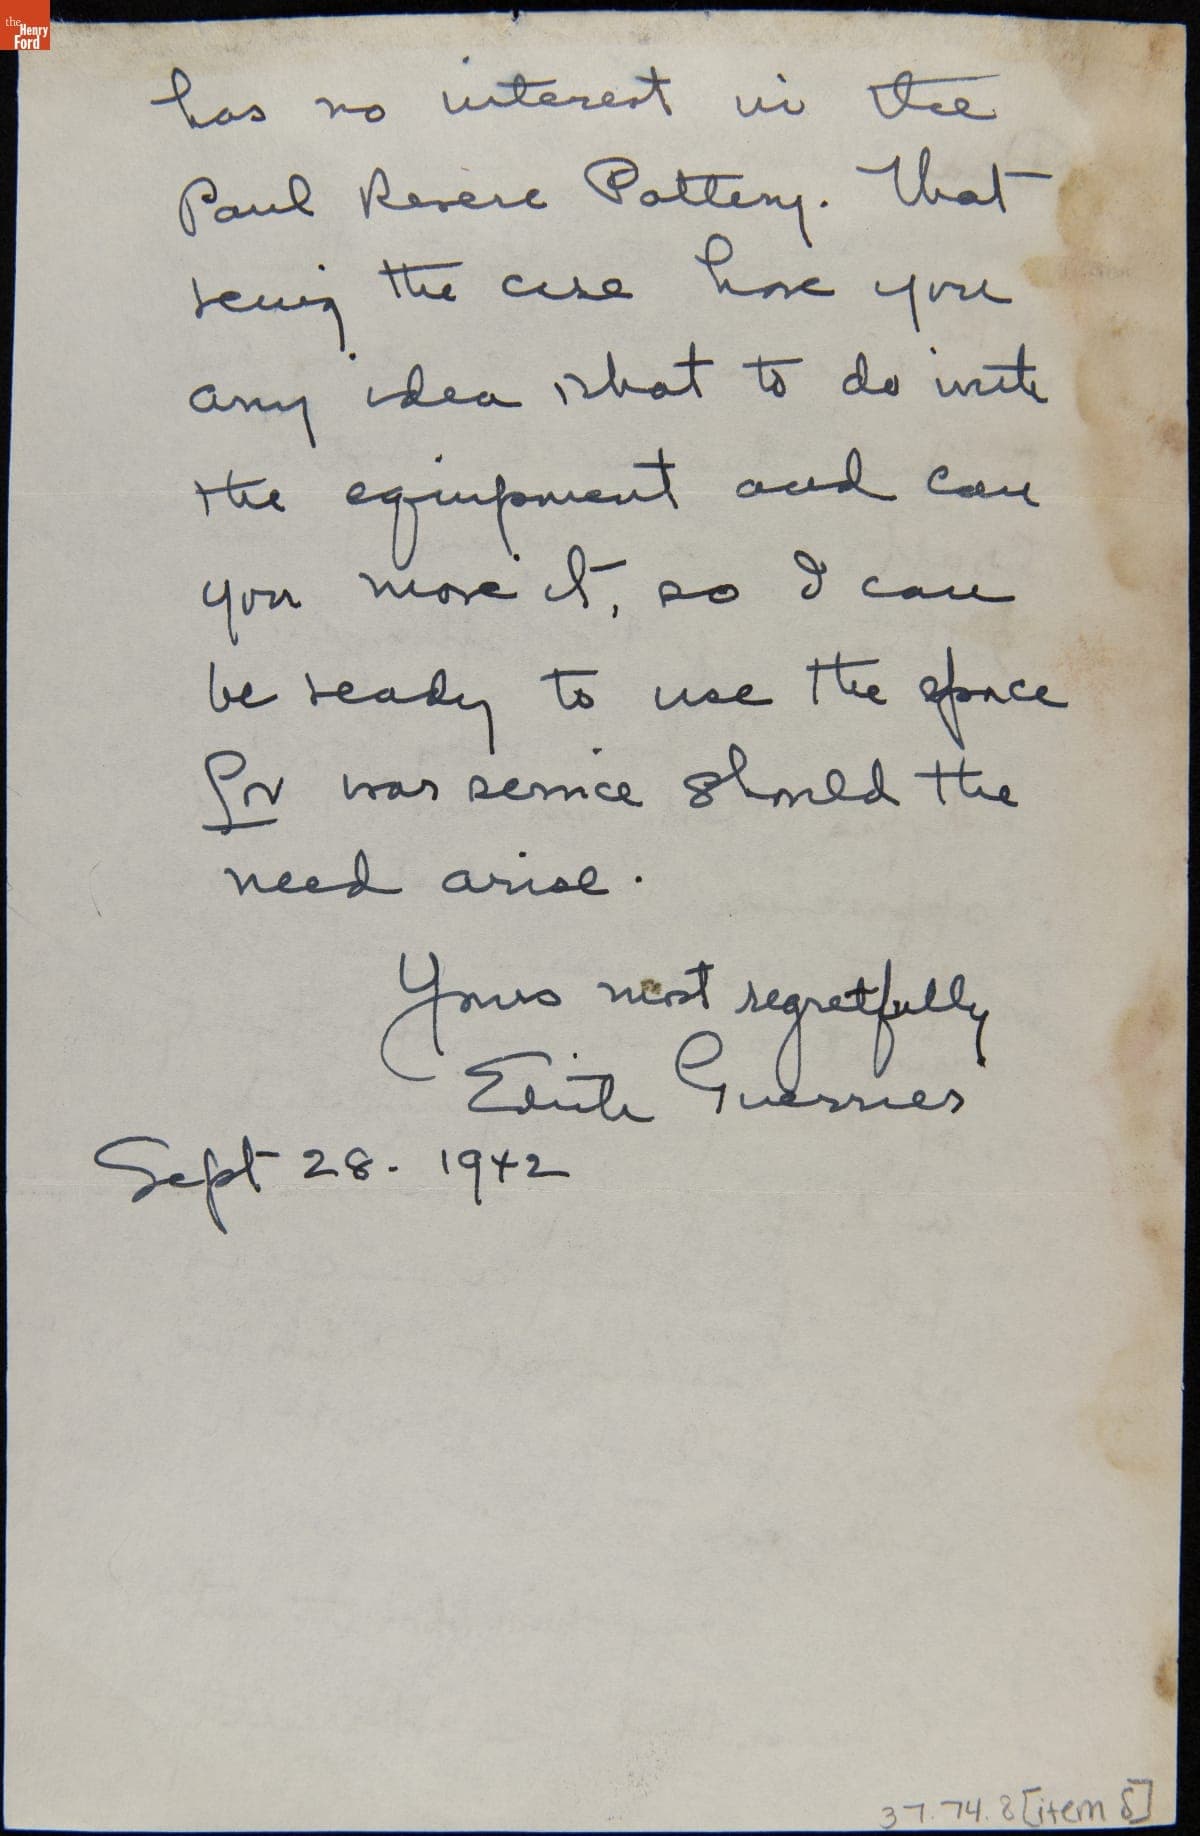 the
Henry
Ford
has no interest in the
Paul Revere Pottery. That
being the case have you
any idea what to do with
the equipment and can
you move it, so I can
be ready to use the space
for war service should the
need arise.
Yours most regretfully
Edith Guerrier
Sept 28. 1942
37.74.8 [item 5]